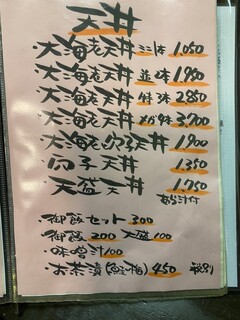 天丼
・大海老天丼 ミニ体 1,050
・大海老天丼 並体 1,980
・大海老天丼 特体 2,850
・大海老天丼 メガ体 3,700
・大海老穴子天丼 1,900
・穴子天丼 1,350
・天盛天丼 1,750
あら汁付
・御飯セット 300
・御飯 200 大盛 100
・味噌汁 100
・お茶漬 450 税別